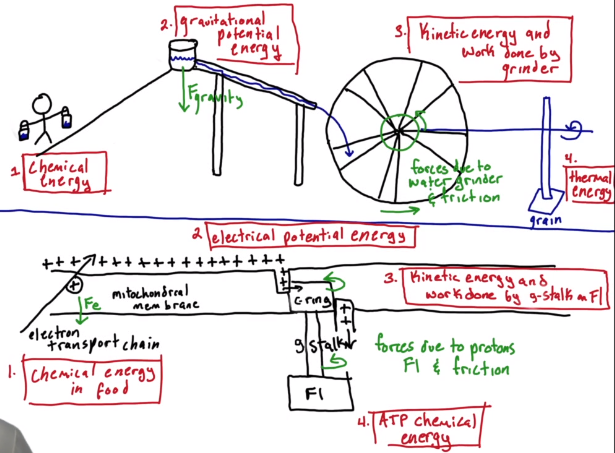 2. gravitational
potential
energy
3. Kinetic energy and
work done by
grinder
Fgravity
1. Chemical
Energy
forces due to
water grinder
& friction
4.
thermal
energy
grain
2 electrical potential energy
+ + + + + + + + + + + + + + + + + +
+
mitochondrial
membrane
Fe
electron
transport chain
+
+
C-ring
+
+
3. Kinetic energy and
work done by g-stalk on F1
g stalk
forces due to protons
F1 & friction
1. Chemical energy
in food
F1
4. ATP chemical
energy